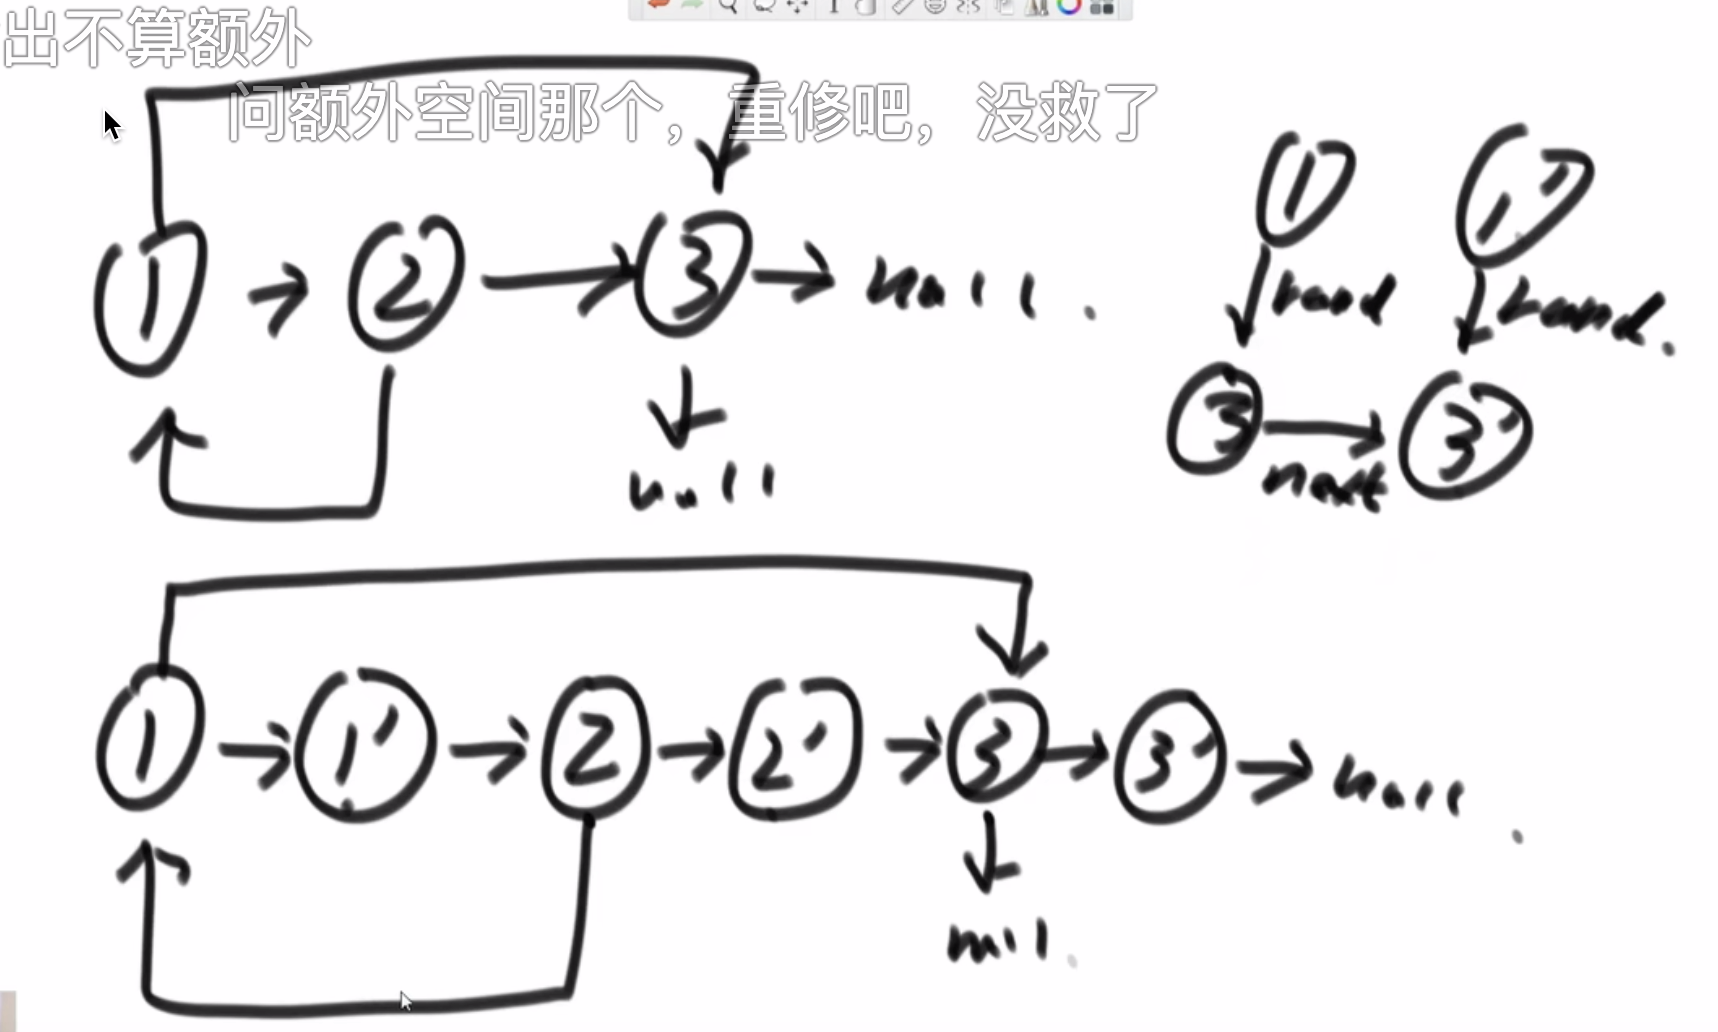 出不算额外
问额外空间那个，重修吧，没救了
1 2 3 null
null
1 1'
rand rand
3 next 3'
1 1' 2 2' 3 3' null
null